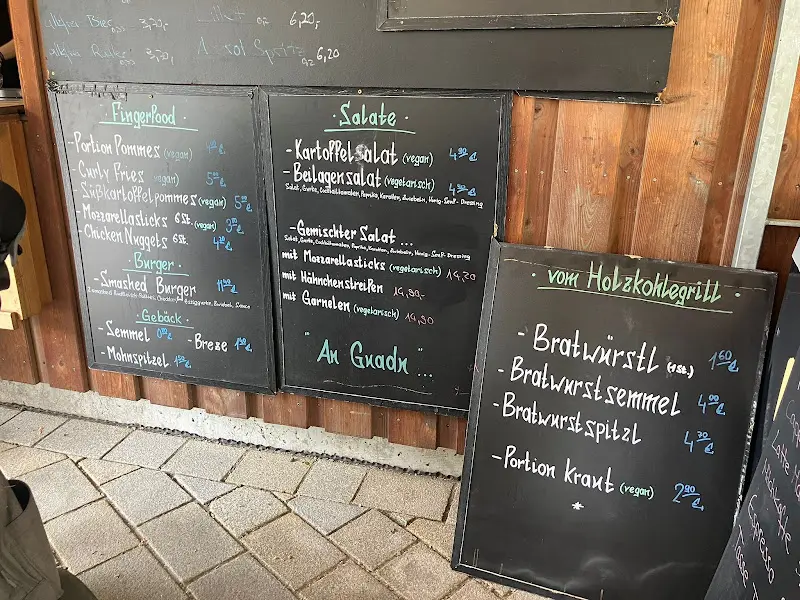 Bier 3,20,-
6,20,-
3,20,-
6,20
Fingerfood
- Portion Pommes (vegan)
- Curly Fries (vegan)
Süßkartoffelpommes (vegan)
- Mozzarellasticks 6St. (vegan)
- Chicken Nuggets 6St.
· Burger ·
- Smashed Burger
· Gebäck ·
- Semmel
- Breze
- Mohnspitzel
· Salate ·
- Kartoffelsalat (vegan) 4 90 €
- Beilagensalat (vegetarisch) 4 90 €
Salat, Gurke, Cocktailtomaten, Paprika, Karotten, Zwiebeln, Honig-Senf-Dressing
- Gemischter Salat ...
Salat, Gurke, Cocktailtomaten, Paprika, Karotten, Zwiebeln, Honig-Senf-Dressing
mit Mozzarellasticks (vegetarisch) 14,20
mit Hähnchenstreifen 14,90,-
mit Garnelen (vegetarisch) 14,90
"An Guadn" ...
· vom Holzkohlegrill ·
- Bratwürstl (1St.) 1 60 €
- Bratwurstsemmel 4 00 €
- Bratwurstspitzl 4 30 €
- Portion Kraut (vegan) 2 90 €
Espresso